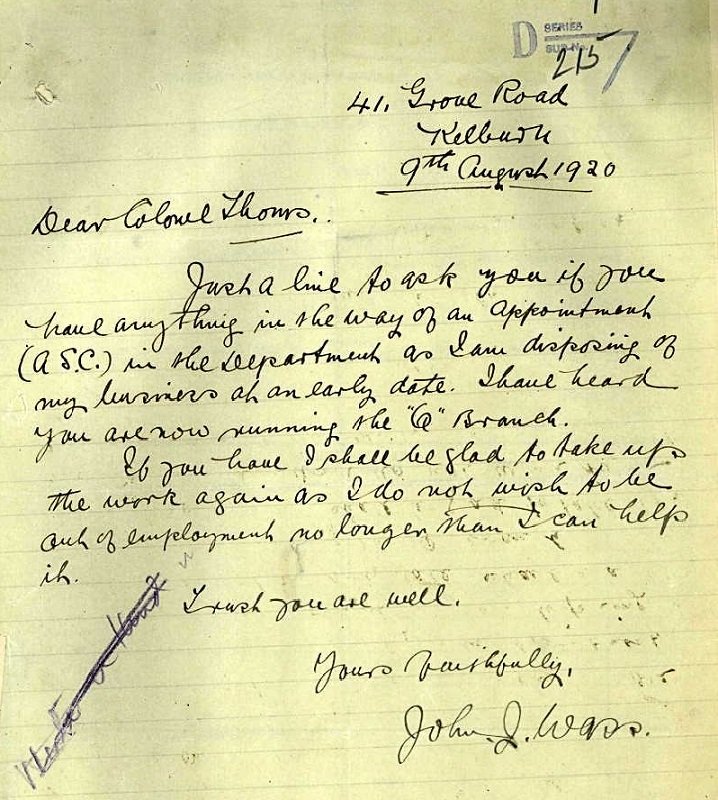 D SERIES
SUB-No.
215
41, Grove Road
Kelburn
9th August 1920
Dear Colonel Thoms.
Just a line to ask you if you
have anything in the way of an appointment
(A S.C.) in the Department as I am disposing of
my business at an early date. I have heard
you are now running the "Q" Branch.
If you have I shall be glad to take up
the work again as I do not wish to be
out of employment no longer than I can help
it.
Trust you are well.
Yours faithfully,
John J. Wass.